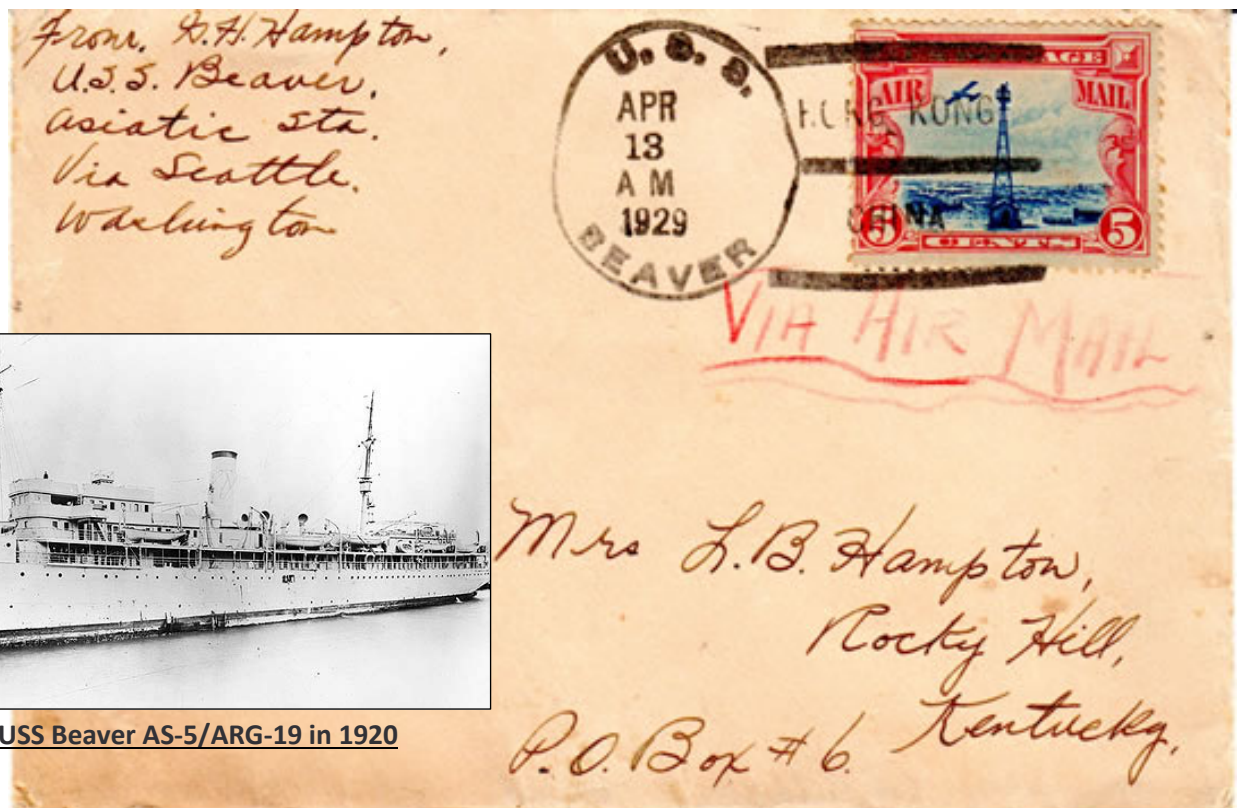 From, Hampton,
U.S.S. Beaver.
Asiatic Sta.
Via Seattle.
Washington
U. S. S.
APR
13
A M
1929
BEAVER
HONG KONG
CHINA
AGE
AIR MAIL
5 CENTS 5
VIA AIR MAIL
Mrs L.B. Hampton,
Rocky Hill,
Kentucky,
P.O. Box # 6.
USS Beaver AS-5/ARG-19 in 1920